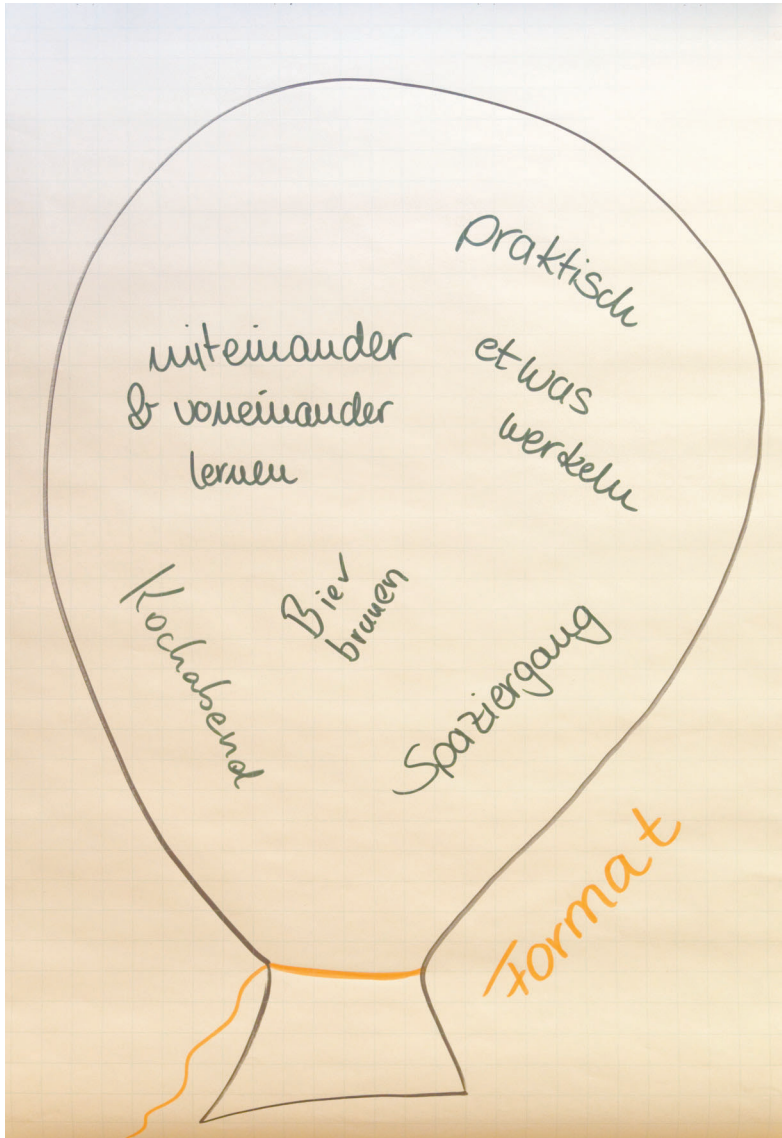 praktisch
etwas
werkeln
miteinander
& voneinander
lernen
Bier
brauen
Kochabend
Spaziergang
Format